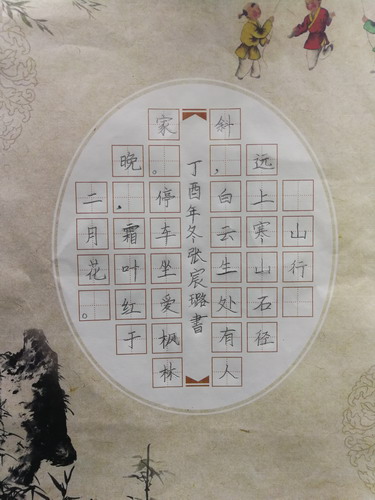 山行
远上寒山石径
斜，白云生处有人
丁酉年冬张宸璐書
家。停车坐爱枫林
晚，霜叶红于
二月花。